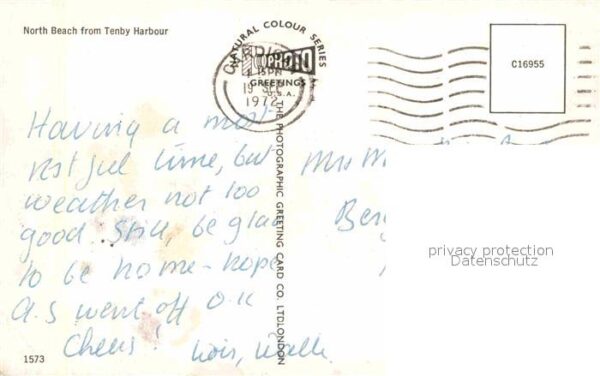 North Beach from Tenby Harbour
NATURAL COLOUR SERIES
PHOTO
GREETINGS
U.S.A.
CARDIFF
PM
19
1972
C16955
Having a most
restful time, but
weather not too
good. Still, be glad
to be home - hope
A.S went off O.K
Cheers!
Lois,
Mrs M
THE PHOTOGRAPHIC GREETING CARD CO. LTD. LONDON
privacy protection
Datenschutz
1573